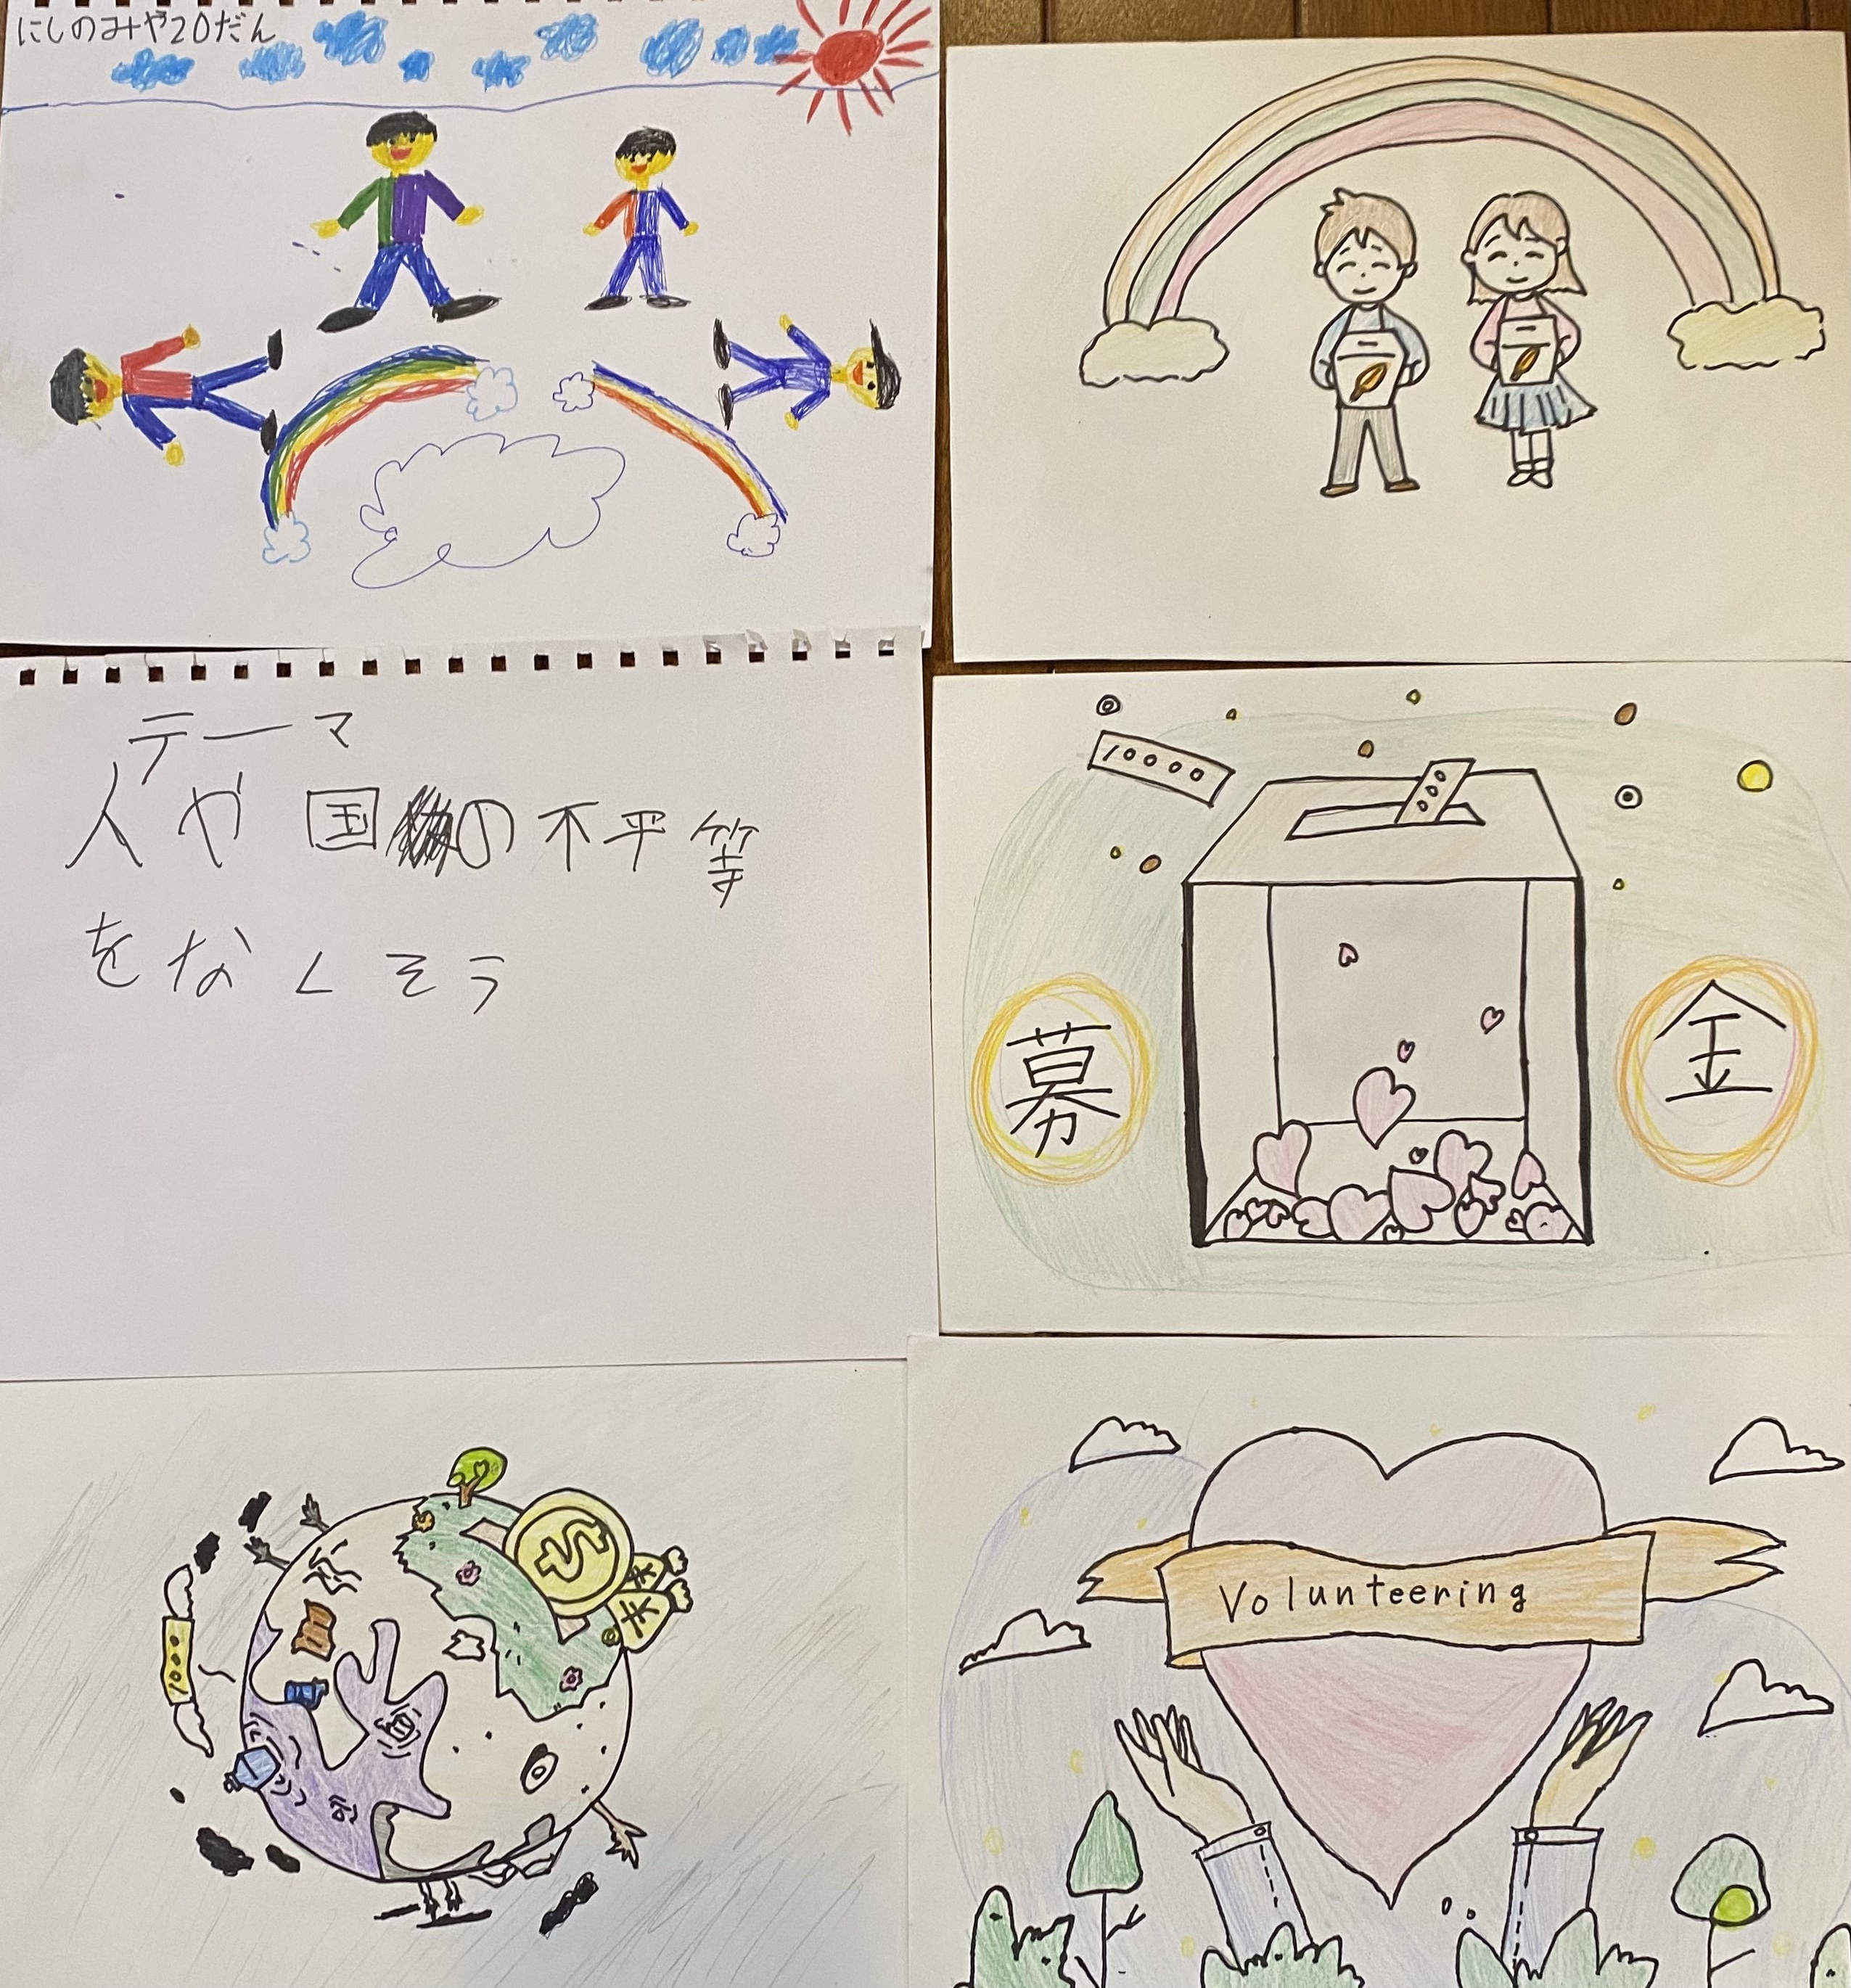 にしのみや20だん
テーマ
人や国の不平等
をなくそう
10000
000
募
金
$
1000
Volunteering